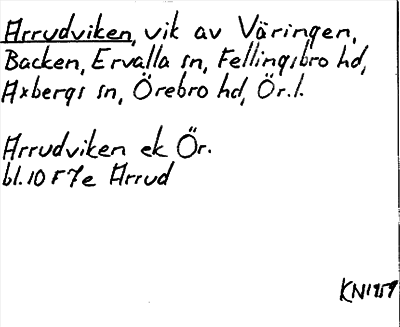 Arrudviken, vik av Väringen,
Backen, Ervalla sn, Fellingsbro hd,
Axbergs sn, Örebro hd, Ör.l.
Arrudviken ek Ör.
bl.10 F 7e Arrud